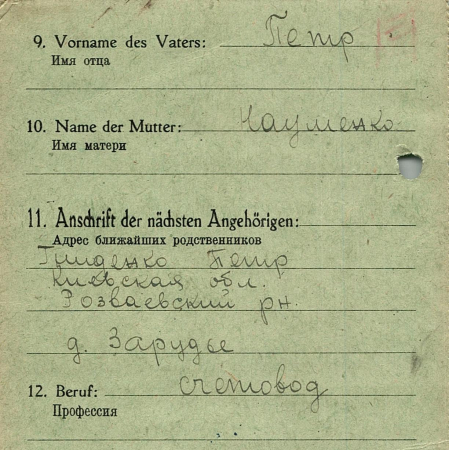 9. Vorname des Vaters: Петр
Имя отца
10. Name der Mutter: Науменко
Имя матери
11. Anschrift der nächsten Angehörigen:
Адрес ближайших родственников
Петр
Киевская обл.
Розваевский рн.
д. Зарудье
12. Beruf: счетовод
Профессия